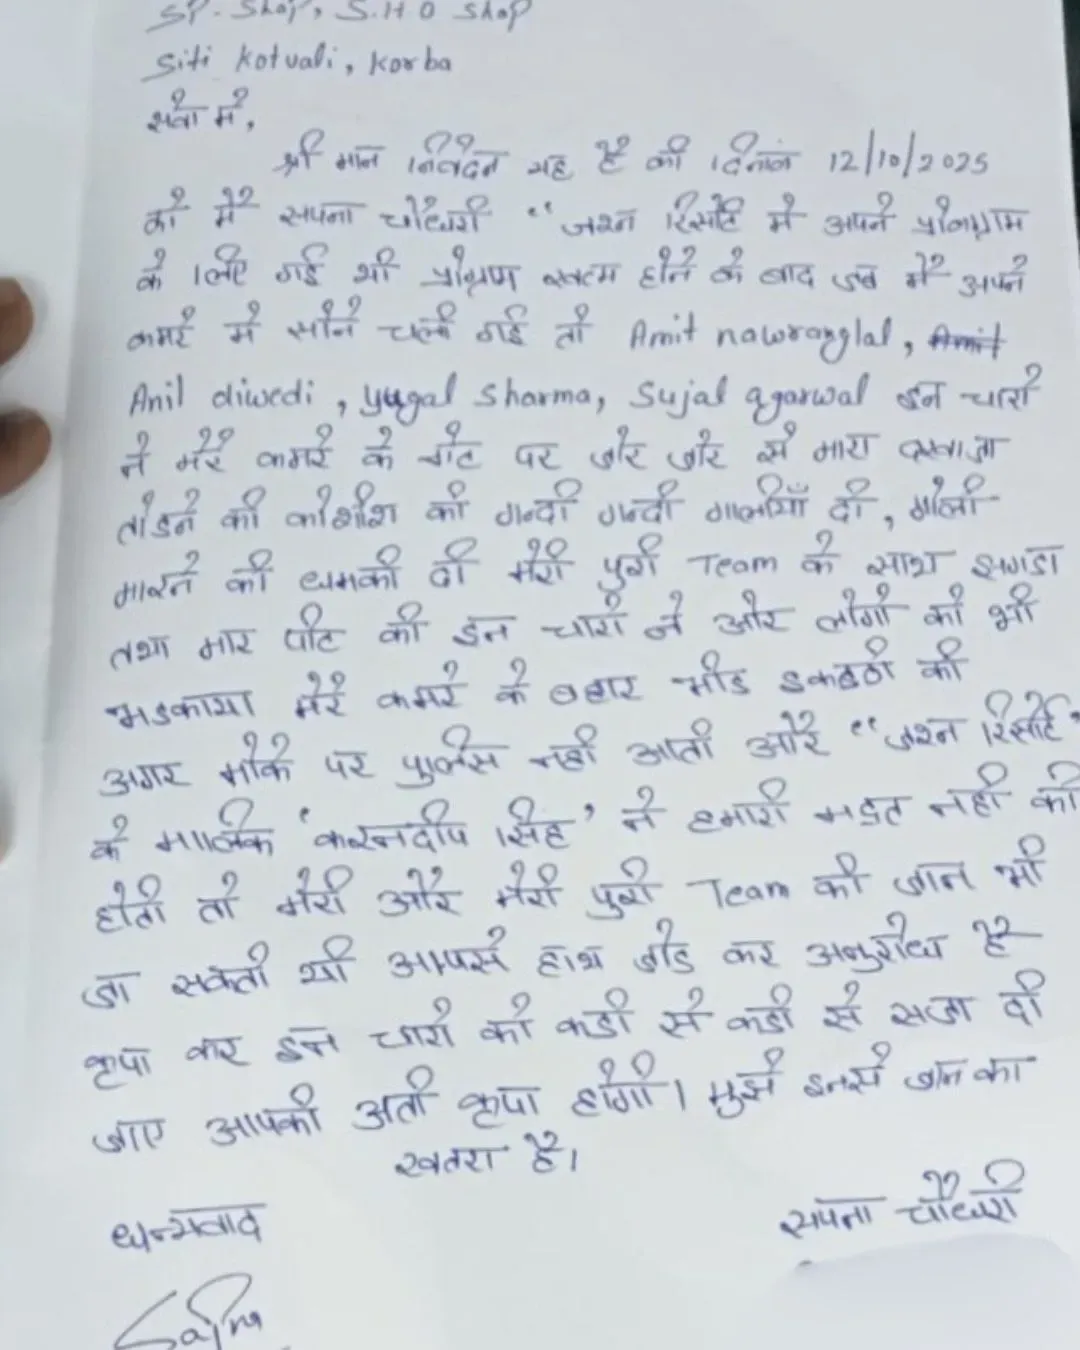 SP. Shop, S.H.O Shop
Siti Kotvali, Korba
सेवा मे,
श्री मान निवेदन यह है की दिनांक 12/10/2025
को मै सपना चौधरी "जश्न रिसोर्ट मे अपने प्रोग्राम
के लिए गई थी प्रोग्राम खत्म होने के बाद जब मैं अपने
कमरे मे सोने चली गई तो Amit nawranglal, Amit
Anil diwedi, yugal Sharma, Sujal agarwal इन चारो
ने मेरे कमरे के गेट पर जोर जोर से मारा दरवाजा
तोडने की कोशीश की गन्दी गन्दी गालीयाँ दी, गोली
मारने की धमकी दी मेरी पुरी Team के साथ झगडा
तथा मार पीट की इन चारो ने और लोगो को भी
भडकाया मेरे कमरे के बहार भीड इकठठी की
अगर मौके पर पुलिस नही आती और "जश्न रिसोर्ट"
के मालिक 'करनदीप सिंह' ने हमारी मद्दत नही की
होती तो मेरी और मेरी पुरी Team की जान भी
जा सकती थी आपसे हाथ जोड कर अनुरोध है
कृपा कर इन चारो को कडी से कडी से सजा दी
जाए आपकी अती कृपा होगी। मुझे इनसे जान का
खतरा है।
धन्यवाद
सपना चौधरी
Sapna